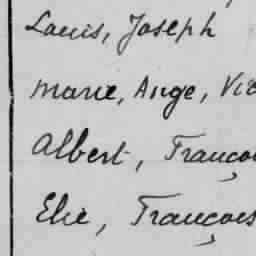 Louis, Joseph
Marie, Ange, Vic
Albert, Franço
Elie, François